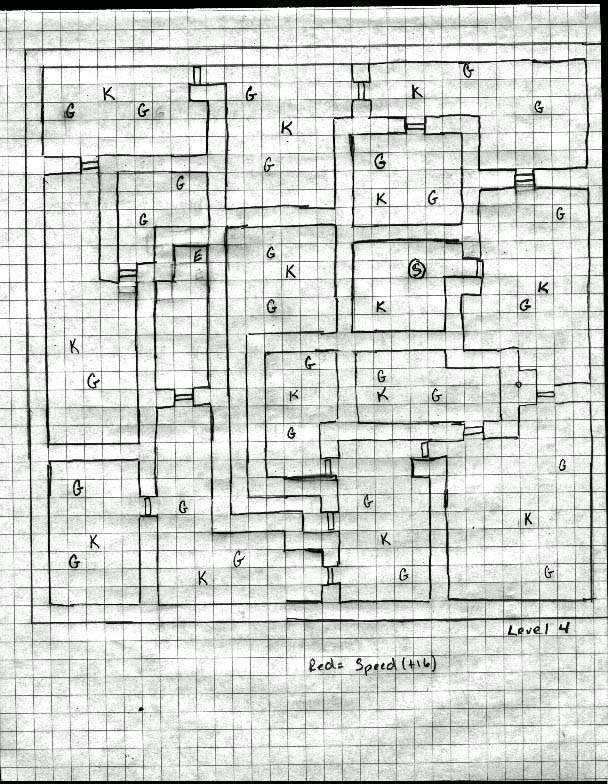 G
K
G
K
G
G
G
G
K
G
G
G
G
K
G
G
E
G
K
G
S
K
K
G
K
G
G
K
G
G
K
G
G
K
G
G
K
G
G
G
K
G
K
G
K
G
Level 4
Red= Speed (+16)